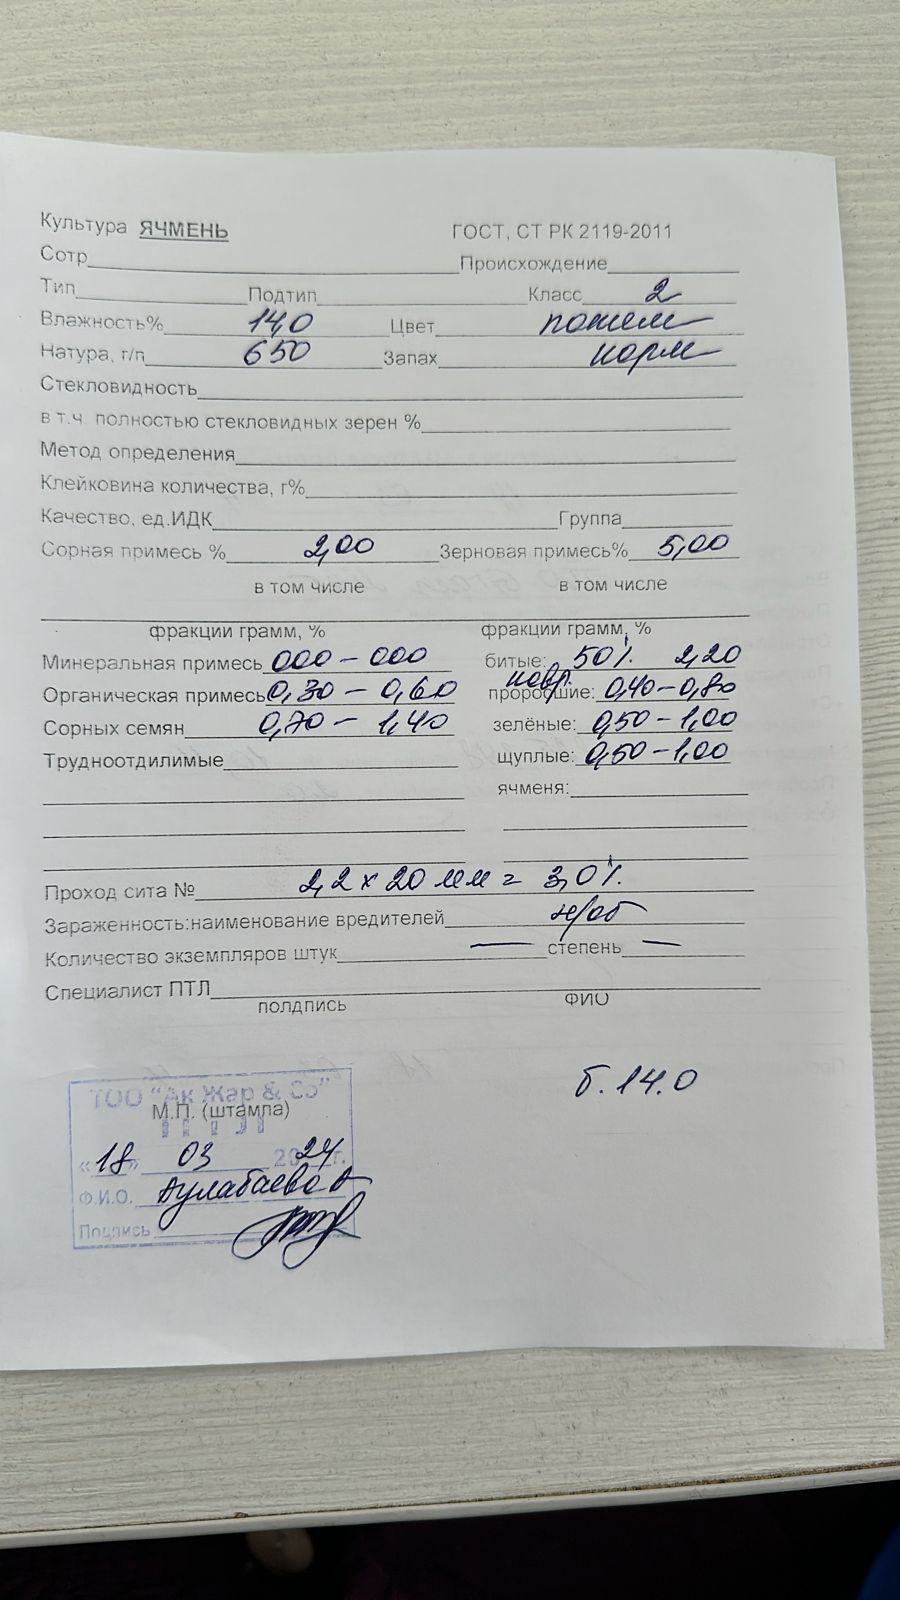 Культура ЯЧМЕНЬ ГОСТ, СТ РК 2119-2011
Сотр Происхождение
Тип Подтип Класс 2
Влажность% 14,0 Цвет потем
Натура, г/л 650 Запах норм
Стекловидность
в т.ч полностью стекловидных зерен %
Метод определения
Клейковина количества, г%
Качество, ед.ИДК Группа
Сорная примесь % 2,00 Зерновая примесь% 5,00
в том числе в том числе
фракции грамм, % фракции грамм, %
Минеральная примесь 000 – 000 битые: 50% 2,20
Органическая примесь 0,30 – 0,60 повр. проросшие: 0,40 – 0,80
Сорных семян 0,70 – 1,40 зелёные: 0,50 – 1,00
Трудноотдилимые щуплые: 0,50 – 1,00
ячменя:
Проход сита № 2,2 х 20 мм = 3,0%
Зараженность:наименование вредителей н/об
Количество экземпляров штук — степень —
Специалист ПТЛ
полдпись ФИО
б. 14.0
ТОО "Ак Жар & Со"
М.П. (штампа)
ПТЛ
«18» 03 2024 г.
Ф.И.О.
Подпись